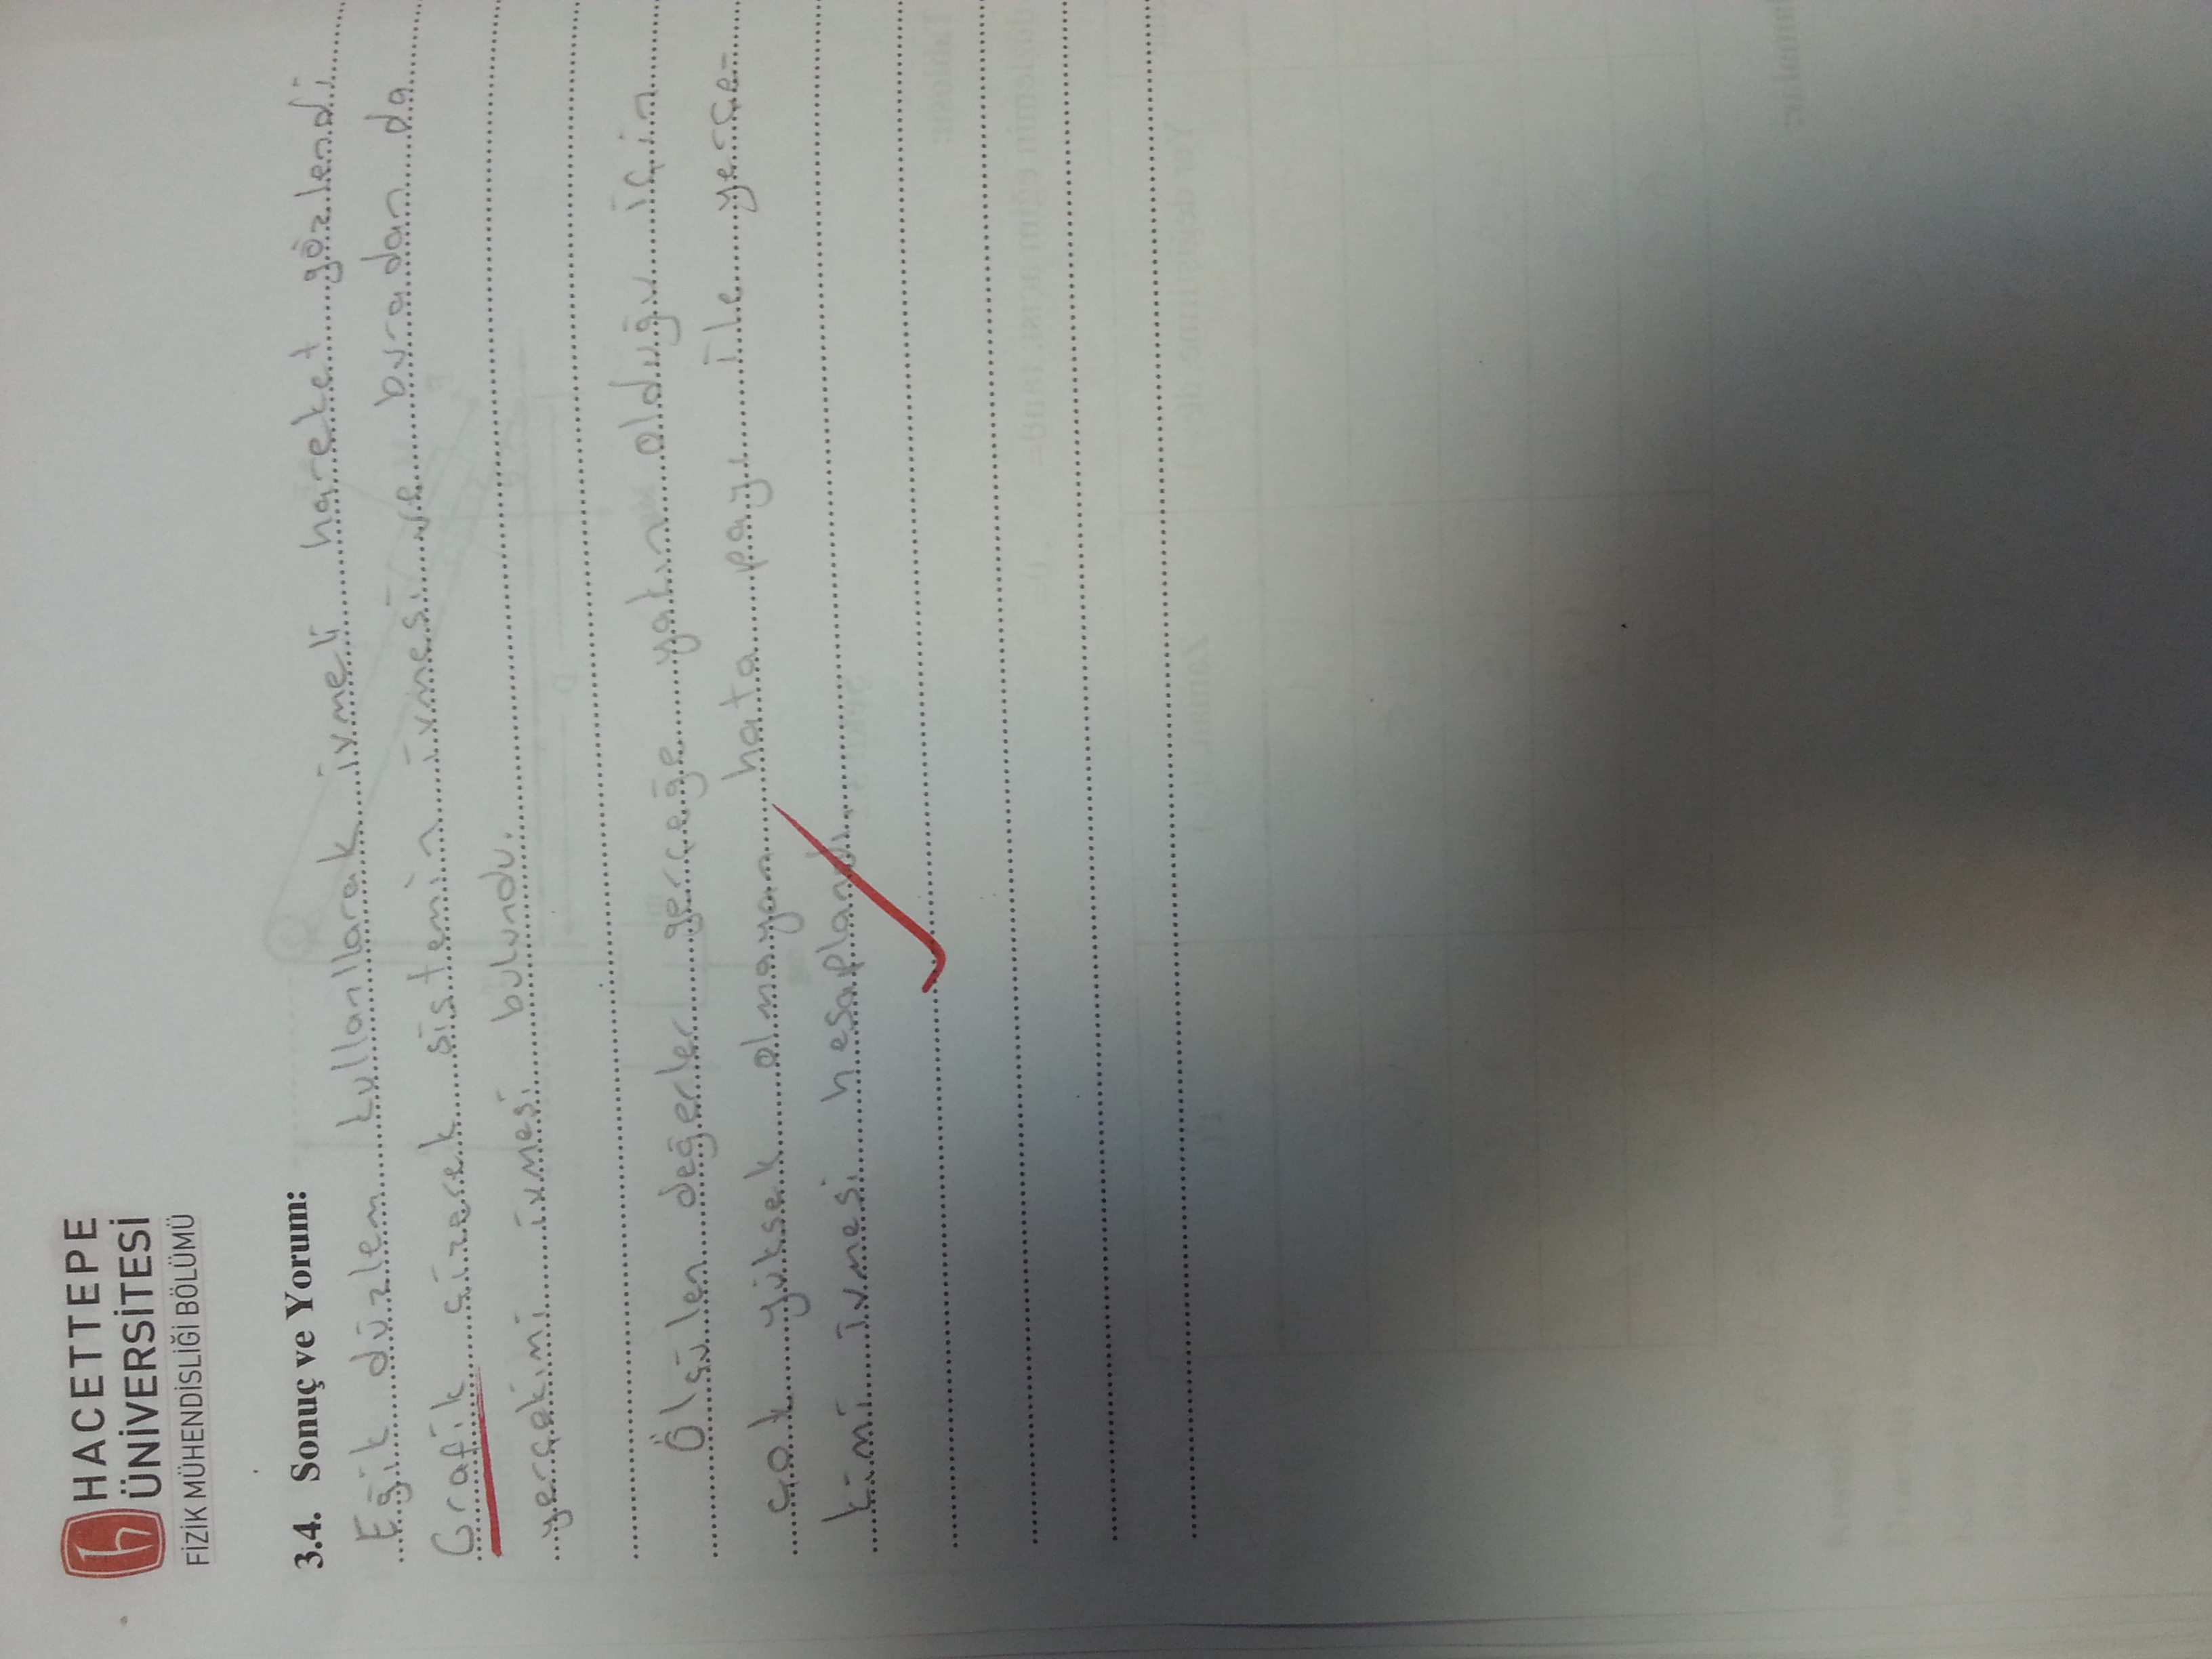 HACETTEPE
ÜNİVERSİTESİ
FİZİK MÜHENDİSLİĞİ BÖLÜMÜ
3.4. Sonuç ve Yorum:
Eğik düzlem kullanılarak ivmeli hareket gözlendi
Grafik çizerek sistemin ivmesi ve buradan da
yerçekimi ivmesi bulundu.
Ölçülen değerler gerçeğe yakın olduğu için
çok yüksek olmayan hata payı ile yerçe-
kimi ivmesi hesaplandı.